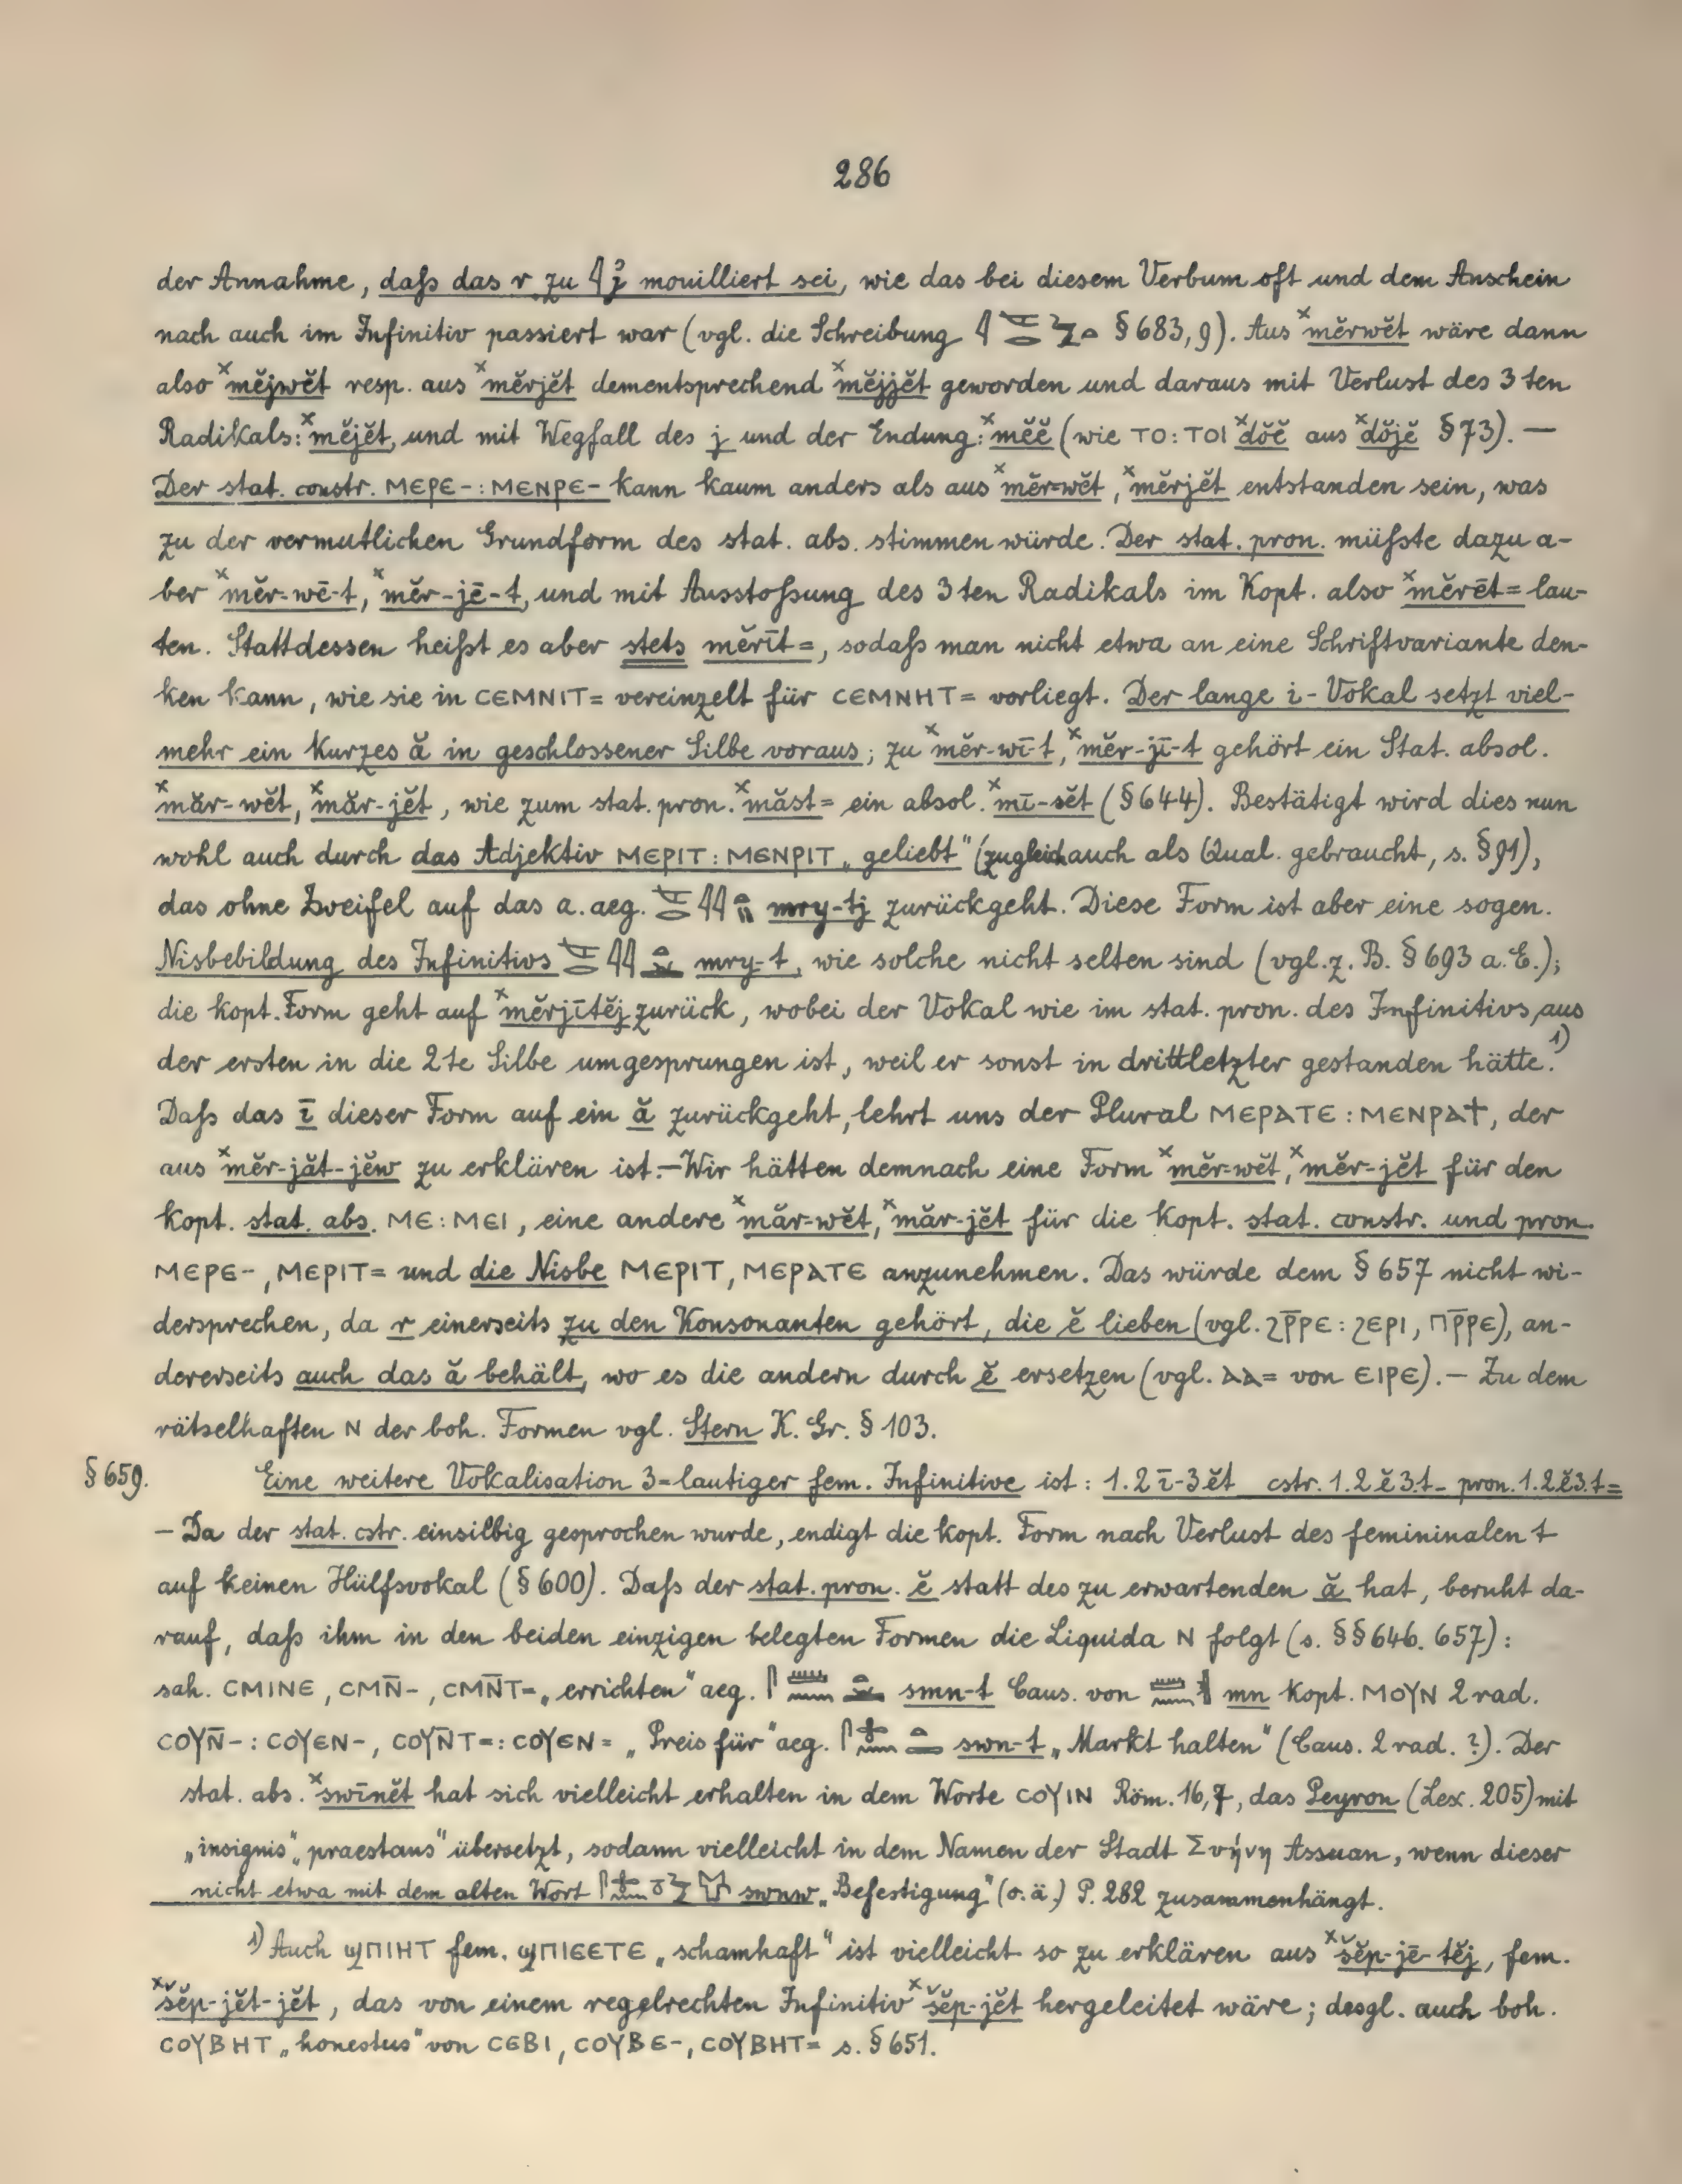 286
der Annahme, daß das r zu 𓇋 j mouilliert sei, wie das bei diesem Verbum oft und dem Anschein
nach auch im Infinitiv passiert war (vgl. die Schreibung § 683, 9). Aus ˣmĕrwĕt wäre dann
also ˣmĕjwĕt resp. aus ˣmĕrjĕt dementsprechend ˣmĕjjĕt geworden und daraus mit Verlust des 3ten
Radikals: ˣmĕjĕt, und mit Wegfall des j und der Endung: ˣmĕĕ (wie ⲦⲞ : ⲦⲞⲒ ˣdŏĕ aus ˣdŏjĕ § 73). —
Der stat. constr. ⲘⲈⲢⲈ- : ⲘⲈⲚⲢⲈ- kann kaum anders als aus ˣmĕr-wĕt, ˣmĕrjĕt entstanden sein, was
zu der vermutlichen Grundform des stat. abs. stimmen würde. Der stat. pron. müßte dazu a-
ber ˣmĕr-wē-t, ˣmĕr-jē-t, und mit Ausstoßung des 3ten Radikals im Kopt. also ˣmĕrēt= lau-
ten. Stattdessen heißt es aber stets mĕrīt=, sodaß man nicht etwa an eine Schriftvariante den-
ken kann, wie sie in ⲤⲈⲘⲚⲒⲦ= vereinzelt für ⲤⲈⲘⲚⲎⲦ= vorliegt. Der lange i-Vokal setzt viel-
mehr ein kurzes ă in geschlossener Silbe voraus; zu ˣmĕr-wī-t, ˣmĕr-jī-t gehört ein Stat. absol.
ˣmăr-wĕt, ˣmăr-jĕt, wie zum stat. pron. ˣmăst= ein absol. ˣmī-sĕt (§ 644). Bestätigt wird dies nun
wohl auch durch das Adjektiv ⲘⲈⲢⲒⲦ : ⲘⲈⲚⲢⲒⲦ „geliebt" (zugleich auch als Qual. gebraucht, s. § 91),
das ohne Zweifel auf das a. aeg. mry-tj zurückgeht. Diese Form ist aber eine sogen.
Nisbebildung des Infinitivs mry-t, wie solche nicht selten sind (vgl. z. B. § 693 a. E.);
die kopt. Form geht auf ˣmĕrjītĕj zurück, wobei der Vokal wie im stat. pron. des Infinitivs aus
der ersten in die 2te Silbe umgesprungen ist, weil er sonst in drittletzter gestanden hätte.¹⁾
Daß das ī dieser Form auf ein ă zurückgeht, lehrt uns der Plural ⲘⲈⲢⲀⲦⲈ : ⲘⲈⲚⲢⲀϮ, der
aus ˣmĕr-jăt-jĕw zu erklären ist. — Wir hätten demnach eine Form ˣmĕr-wĕt, ˣmĕr-jĕt für den
kopt. stat. abs. ⲘⲈ : ⲘⲈⲒ, eine andere ˣmăr-wĕt, ˣmăr-jĕt für die kopt. stat. constr. und pron.
ⲘⲈⲢⲈ-, ⲘⲈⲢⲒⲦ= und die Nisbe ⲘⲈⲢⲒⲦ, ⲘⲈⲢⲀⲦⲈ anzunehmen. Das würde dem § 657 nicht wi-
dersprechen, da r einerseits zu den Konsonanten gehört, die ĕ lieben (vgl. ϨⲢ̅ⲢⲈ : ϨⲈⲢⲒ, ⲠⲢ̅ⲢⲈ), an-
dererseits auch das ă behält, wo es die andern durch ĕ ersetzen (vgl. ⲀⲀ= von ⲈⲒⲢⲈ). — Zu dem
rätselhaften Ⲛ der boh. Formen vgl. Stern K. Gr. § 103.
§ 659. Eine weitere Vokalisation 3=lautiger fem. Infinitive ist: 1.2 ī-3 ĕt cstr. 1.2 ĕ 3.t- pron. 1.2 ĕ 3.t=
— Da der stat. cstr. einsilbig gesprochen wurde, endigt die kopt. Form nach Verlust des femininalen t
auf keinen Hülfsvokal (§ 600). Daß der stat. pron. ĕ statt des zu erwartenden ă hat, beruht da-
rauf, daß ihm in den beiden einzigen belegten Formen die Liquida Ⲛ folgt (s. §§ 646. 657):
sah. ⲤⲘⲒⲚⲈ, ⲤⲘⲚ̅-, ⲤⲘⲚ̅Ⲧ= „errichten" aeg. smn-t Caus. von mn kopt. ⲘⲞⲨⲚ 2 rad.
ⲤⲞⲨⲚ̅- : ⲤⲞⲨⲈⲚ-, ⲤⲞⲨⲚ̅Ⲧ= : ⲤⲞⲨⲈⲚ= „Preis für" aeg. swn-t „Markt halten" (Caus. 2 rad. ?). Der
stat. abs. ˣswīnĕt hat sich vielleicht erhalten in dem Worte ⲤⲞⲨⲒⲚ Röm. 16,7, das Peyron (Lex. 205) mit
„insignis" „praestans" übersetzt, sodann vielleicht in dem Namen der Stadt Συήνη Assuan, wenn dieser
nicht etwa mit dem alten Wort swnw „Befestigung" (o. ä.) P. 282 zusammenhängt.
¹⁾ Auch ϢⲠⲒⲎⲦ fem. ϢⲠⲒⲈⲈⲦⲈ „schamhaft" ist vielleicht so zu erklären aus ˣšĕp-jē-tĕj, fem.
ˣšĕp-jĕt-jĕt, das von einem regelrechten Infinitiv ˣšĕp-jĕt hergeleitet wäre; desgl. auch boh.
ⲤⲞⲨⲂⲎⲦ „honestus" von ⲤⲈⲂⲒ, ⲤⲞⲨⲂⲈ-, ⲤⲞⲨⲂⲎⲦ= s. § 651.